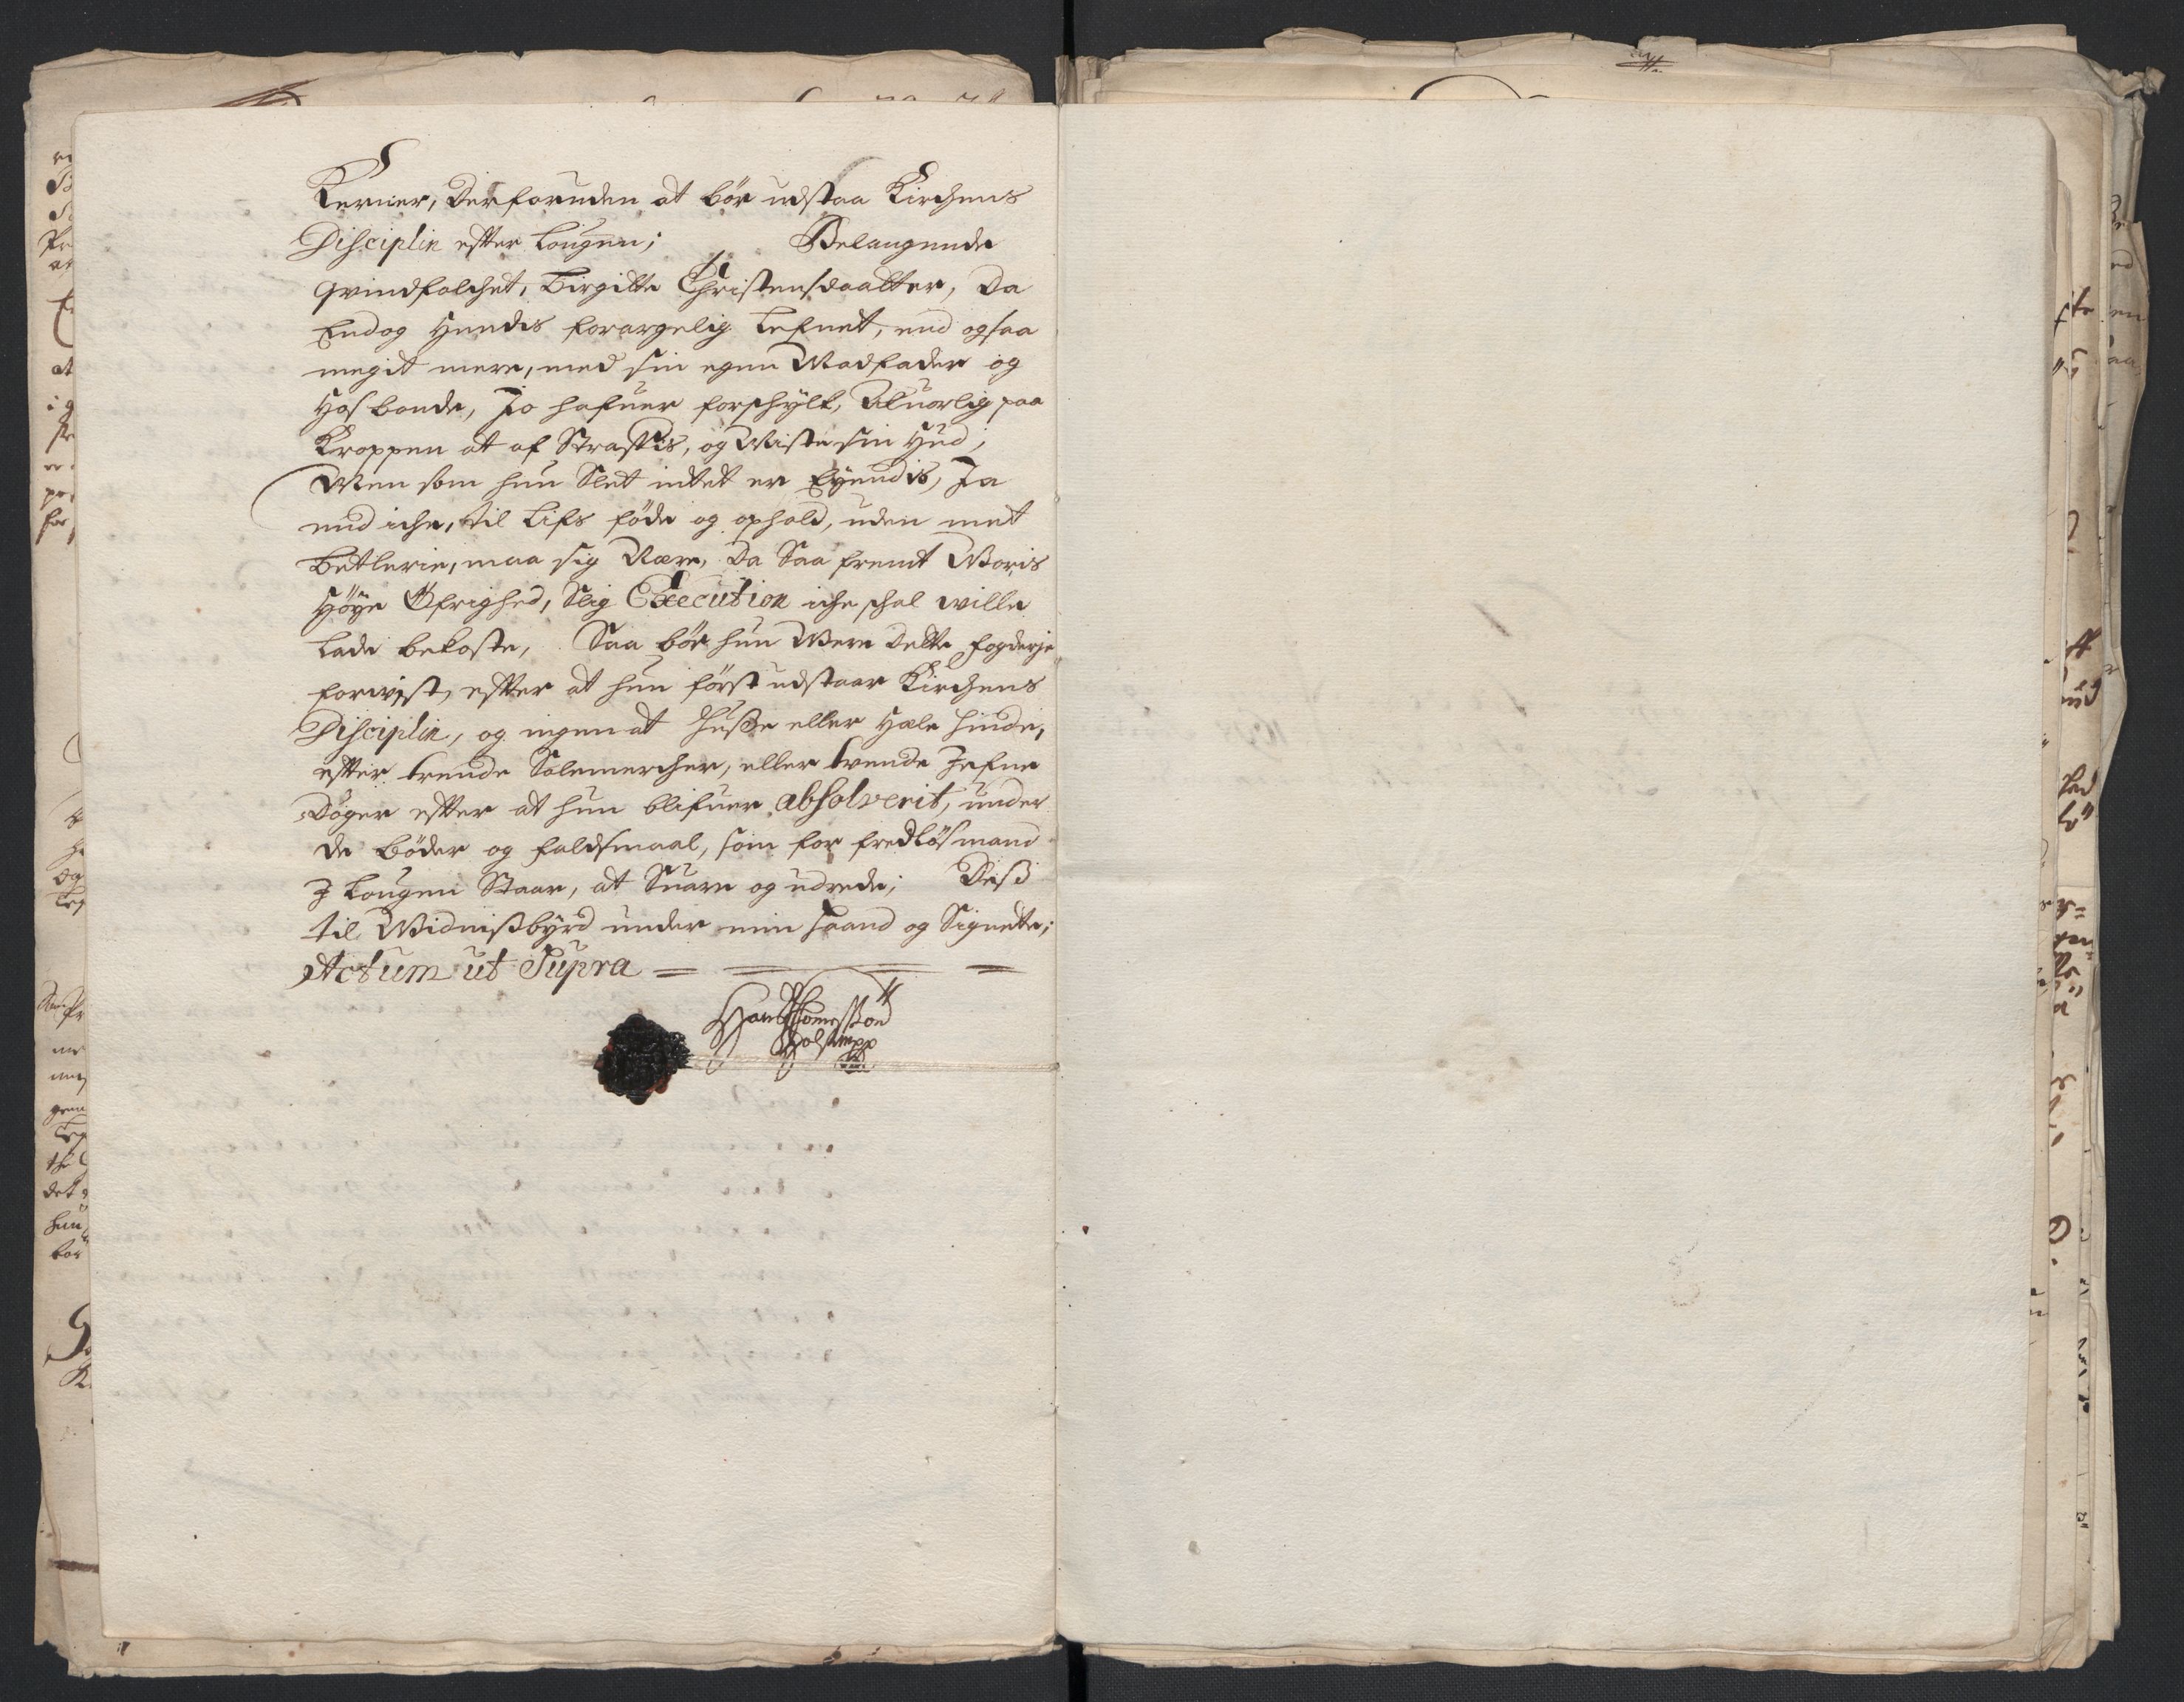 Kerner, Derforuden at bör udstaa Kirchens
Disciplin efter Lougen; Belangende
qvindfolchet, Birgitte Christensdaatter, Da
Endog Hendis forargelig Lefnet, end ogsaa
megit mere, med sin egen Madfader og
Hosbonde, Jo hafuer forschylt, Aluorlig paa
Kroppen at af Straffis, og Miste sin Hud;
Men som hun Slet intet er Eyendis, Ja
end iche, til Lifs föde og ophold, uden met
Betlerie, maa sig Nære, Da Saa fremt Woris
Höye Öfrighed, Slig Execution iche schal wille
Lade bekoste, Saa bör hun Were Dette fogderje
forvist, efter at hun först udstaar Kirchens
Disciplin, og ingen at Husse eller Hæle hinde,
efter trende Solemercher, eller trende Jefne
Döger efter at hun blifuer absolverit, under
de böder og faldsmaal, som for fredlösmand
J Lougen Staar, at Suare og udrede; Diss
til Widnissbyrd under min haand og Signette;
Actum ut Supra